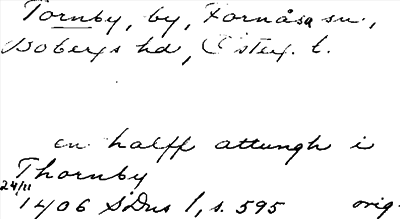 Tornby, by, Fornåsa sn.,
Bobergs hd, Östery. l.
en halff attungh i
Thornby
24/11
1406 SDns 1, s. 595 orig.